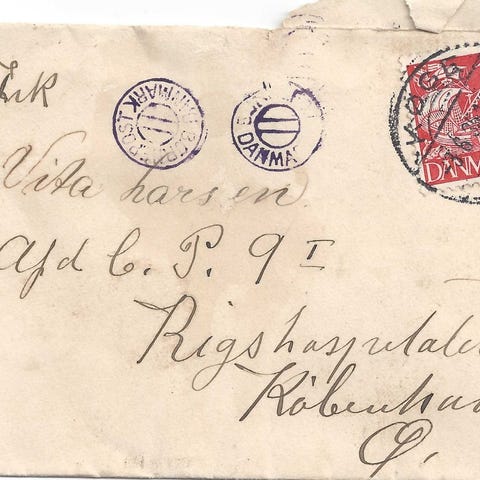 Frk
Vita Larsen
Afd C. P. 9 I
Rigshospitalet
Københav
Ø.
DANMARK
DANMA
DANM
KØGE